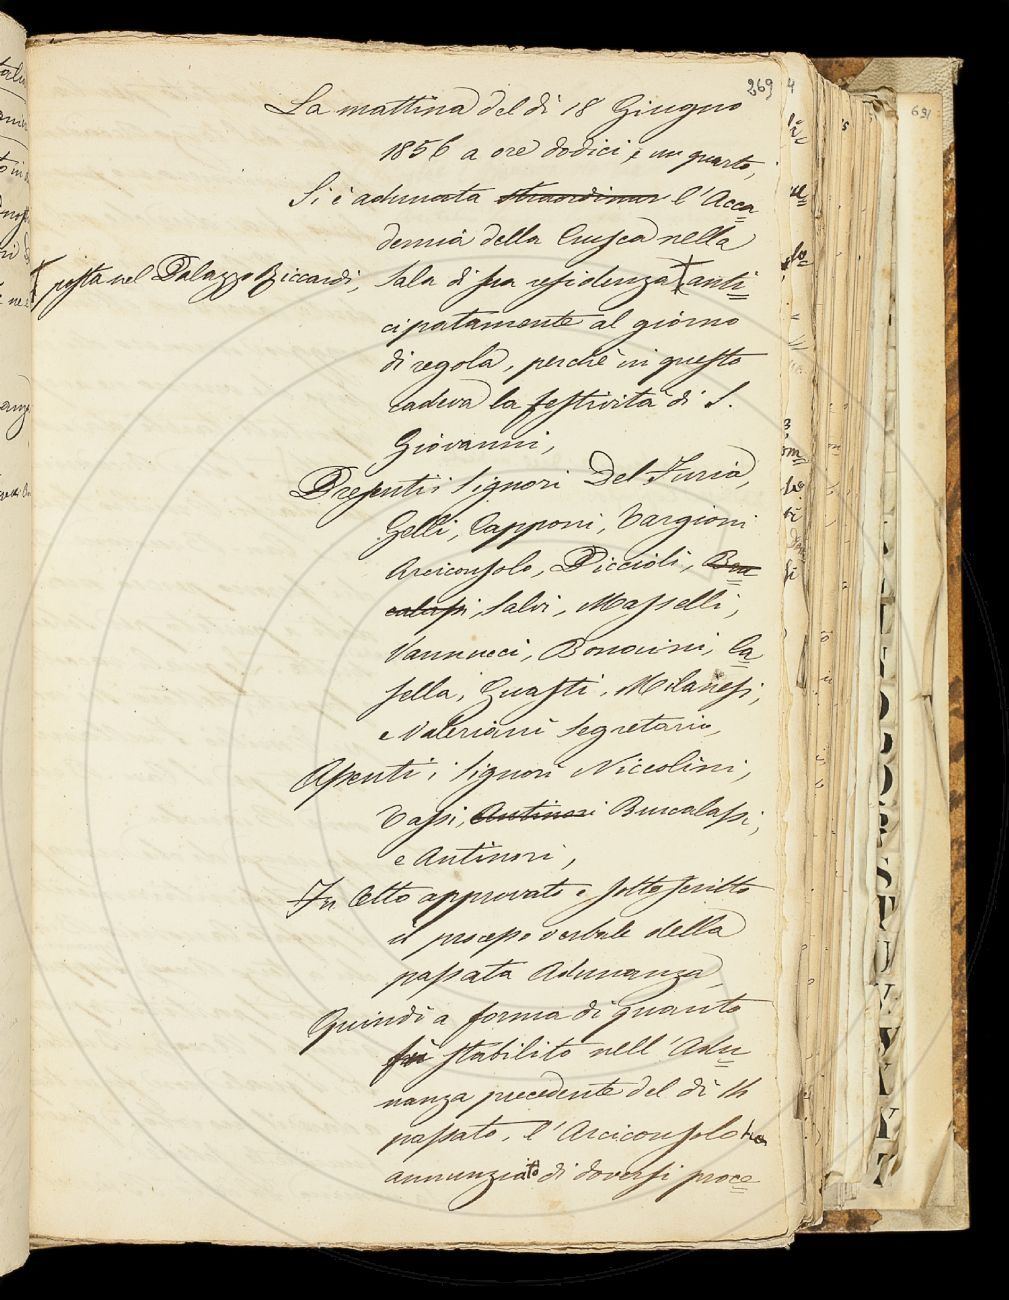 269
La mattina del dì 18 Giugno
1856 a ore dodici, e un quarto,
Si è adunata straordinar l'Acca=
demia della Crusca nella
posta nel Palazzo Riccardi,
Sala di sua residenza anti=
cipatamente al giorno
di regola, perchè in questo
cadeva la festività di S.
Giovanni,
Presenti i Signori Del Furia,
Gelli, Capponi, Targioni
Arciconsolo, Piccioli, Bu=
calossi, Salvi, Masselli,
Vannucci, Bonaini, Ca=
sella, Guasti, Milanesi,
e Valeriani Segretario,
Assenti i Signori Niccolini,
Tassi, Antinori Buscalassi,
e Antinori,
Fu letto approvato e sottoscritto
il processo verbale della
passata Adunanza,
Quindi a forma di quanto
fù stabilito nell'Adu=
nanza precedente del dì
passato, l'Arciconsolo ha
annunziato di doversi proce=